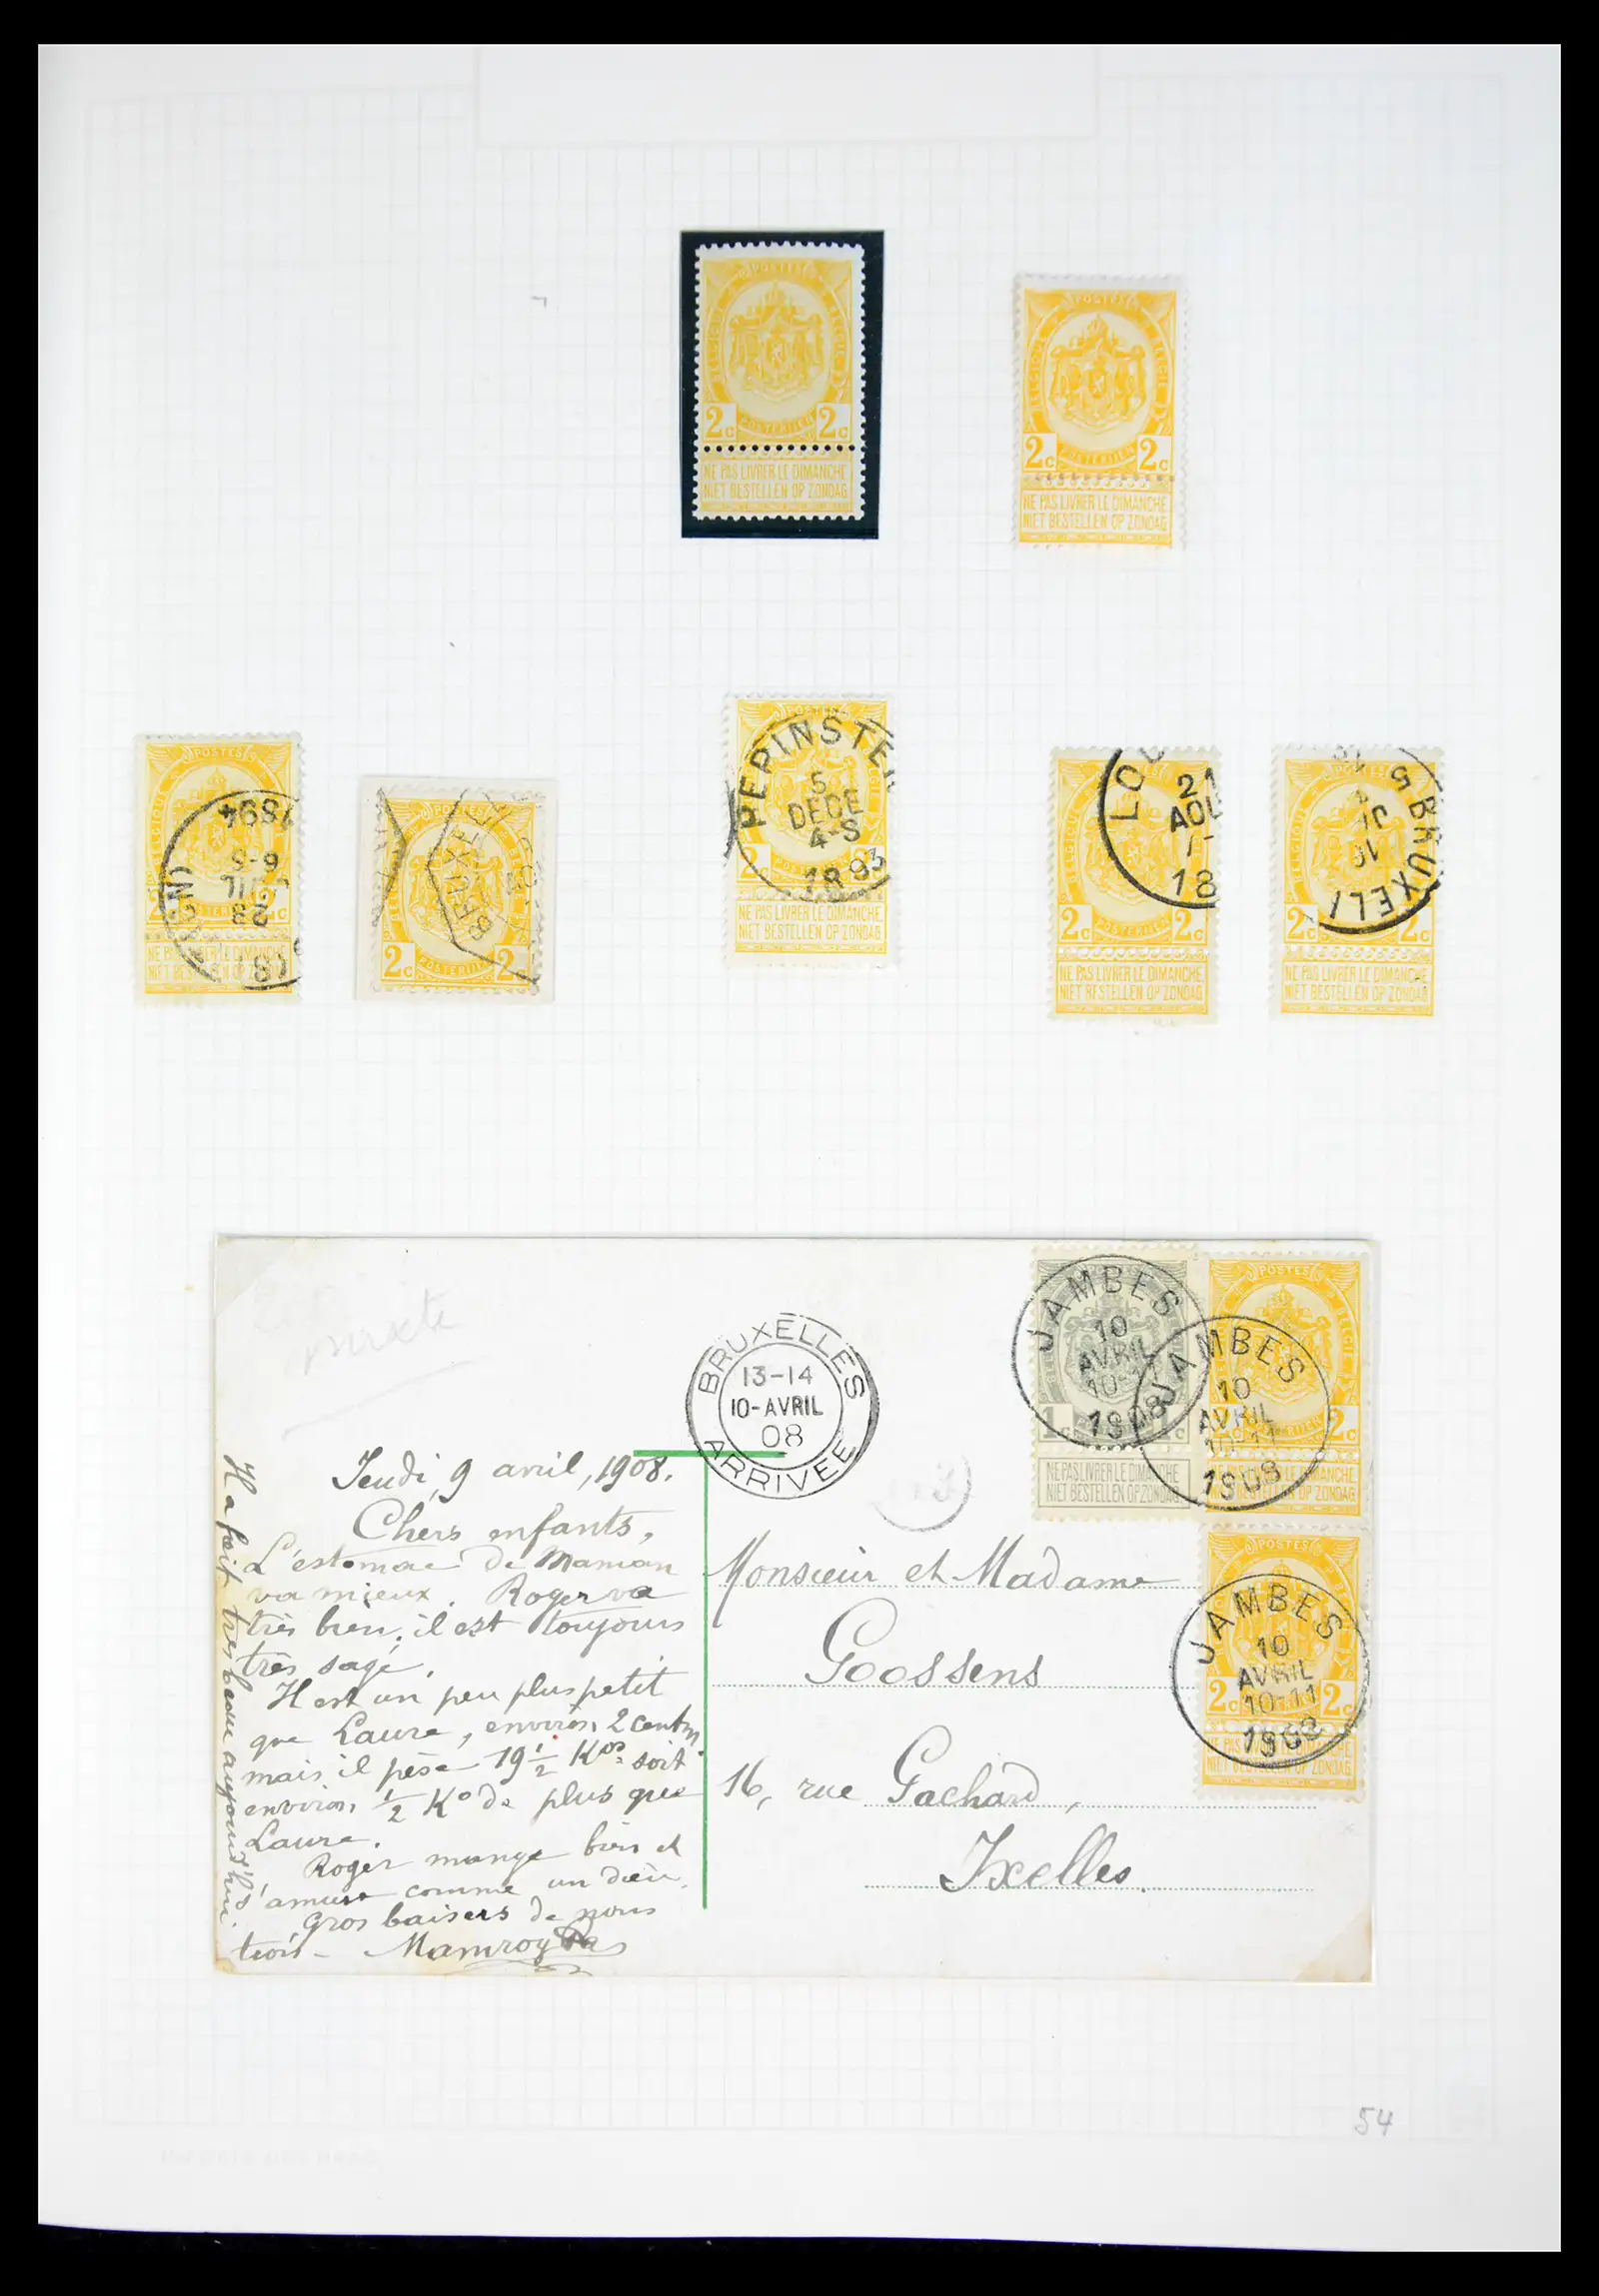 POSTES
BELGIQUE BELGIE
2c POSTERIJEN 2c
NE PAS LIVRER LE DIMANCHE
NIET BESTELLEN OP ZONDAG
POSTES
BELGIQUE BELGIE
2c POSTERIJEN 2c
NE PAS LIVRER LE DIMANCHE
NIET BESTELLEN OP ZONDAG
POSTES
BELGIQUE
1894
6-S
23
2c
NE PAS LIVRER LE DIMANCHE
BRUXEL
2c POSTERIJEN 2
PEPINSTE
5
DECE
4-S
1893
2c
NE PAS LIVRER LE DIMANCHE
NIET BESTELLEN OP ZONDAG
LOU
21
AOU
18
BELGIQUE
2c POSTERIJEN 2c
NE PAS LIVRER LE DIMANCHE
NIET BESTELLEN OP ZONDAG
5 BRUXEL
2c 2c
NE PAS LIVRER LE DIMANCHE
NIET BESTELLEN OP ZONDAG
BRUXELLES
13-14
10-AVRIL
08
ARRIVEE
JAMBES
10
AVRIL
1908
1c
NE PAS LIVRER LE DIMANCHE
NIET BESTELLEN OP ZONDAG
POSTES
BELGIE
JAMBES
10
AVRIL
10-11
1908
2c
OP ZONDAG
JAMBES
10
AVRIL
10-11
1908
2c 2c
NE PAS LIVRER LE DIMANCHE
OP ZONDAG
Jeudi, 9 avril, 1908.
Chers enfants,
L'estomac de Maman
va mieux. Roger va
très bien, il est toujours
très sage.
Il est un peu plus petit
que Laure, environ 2 centm.
mais il pèse 19 1/2 Kos soit
environ 1/2 Ko de plus que
Laure.
Roger mange bien et
s'amuse comme un dieu.
Gros baisers de nous
trois -
Il a fait très beau aujourd'hui.
Monsieur et Madame
Goossens
16, rue Gachard,
Ixelles.
54